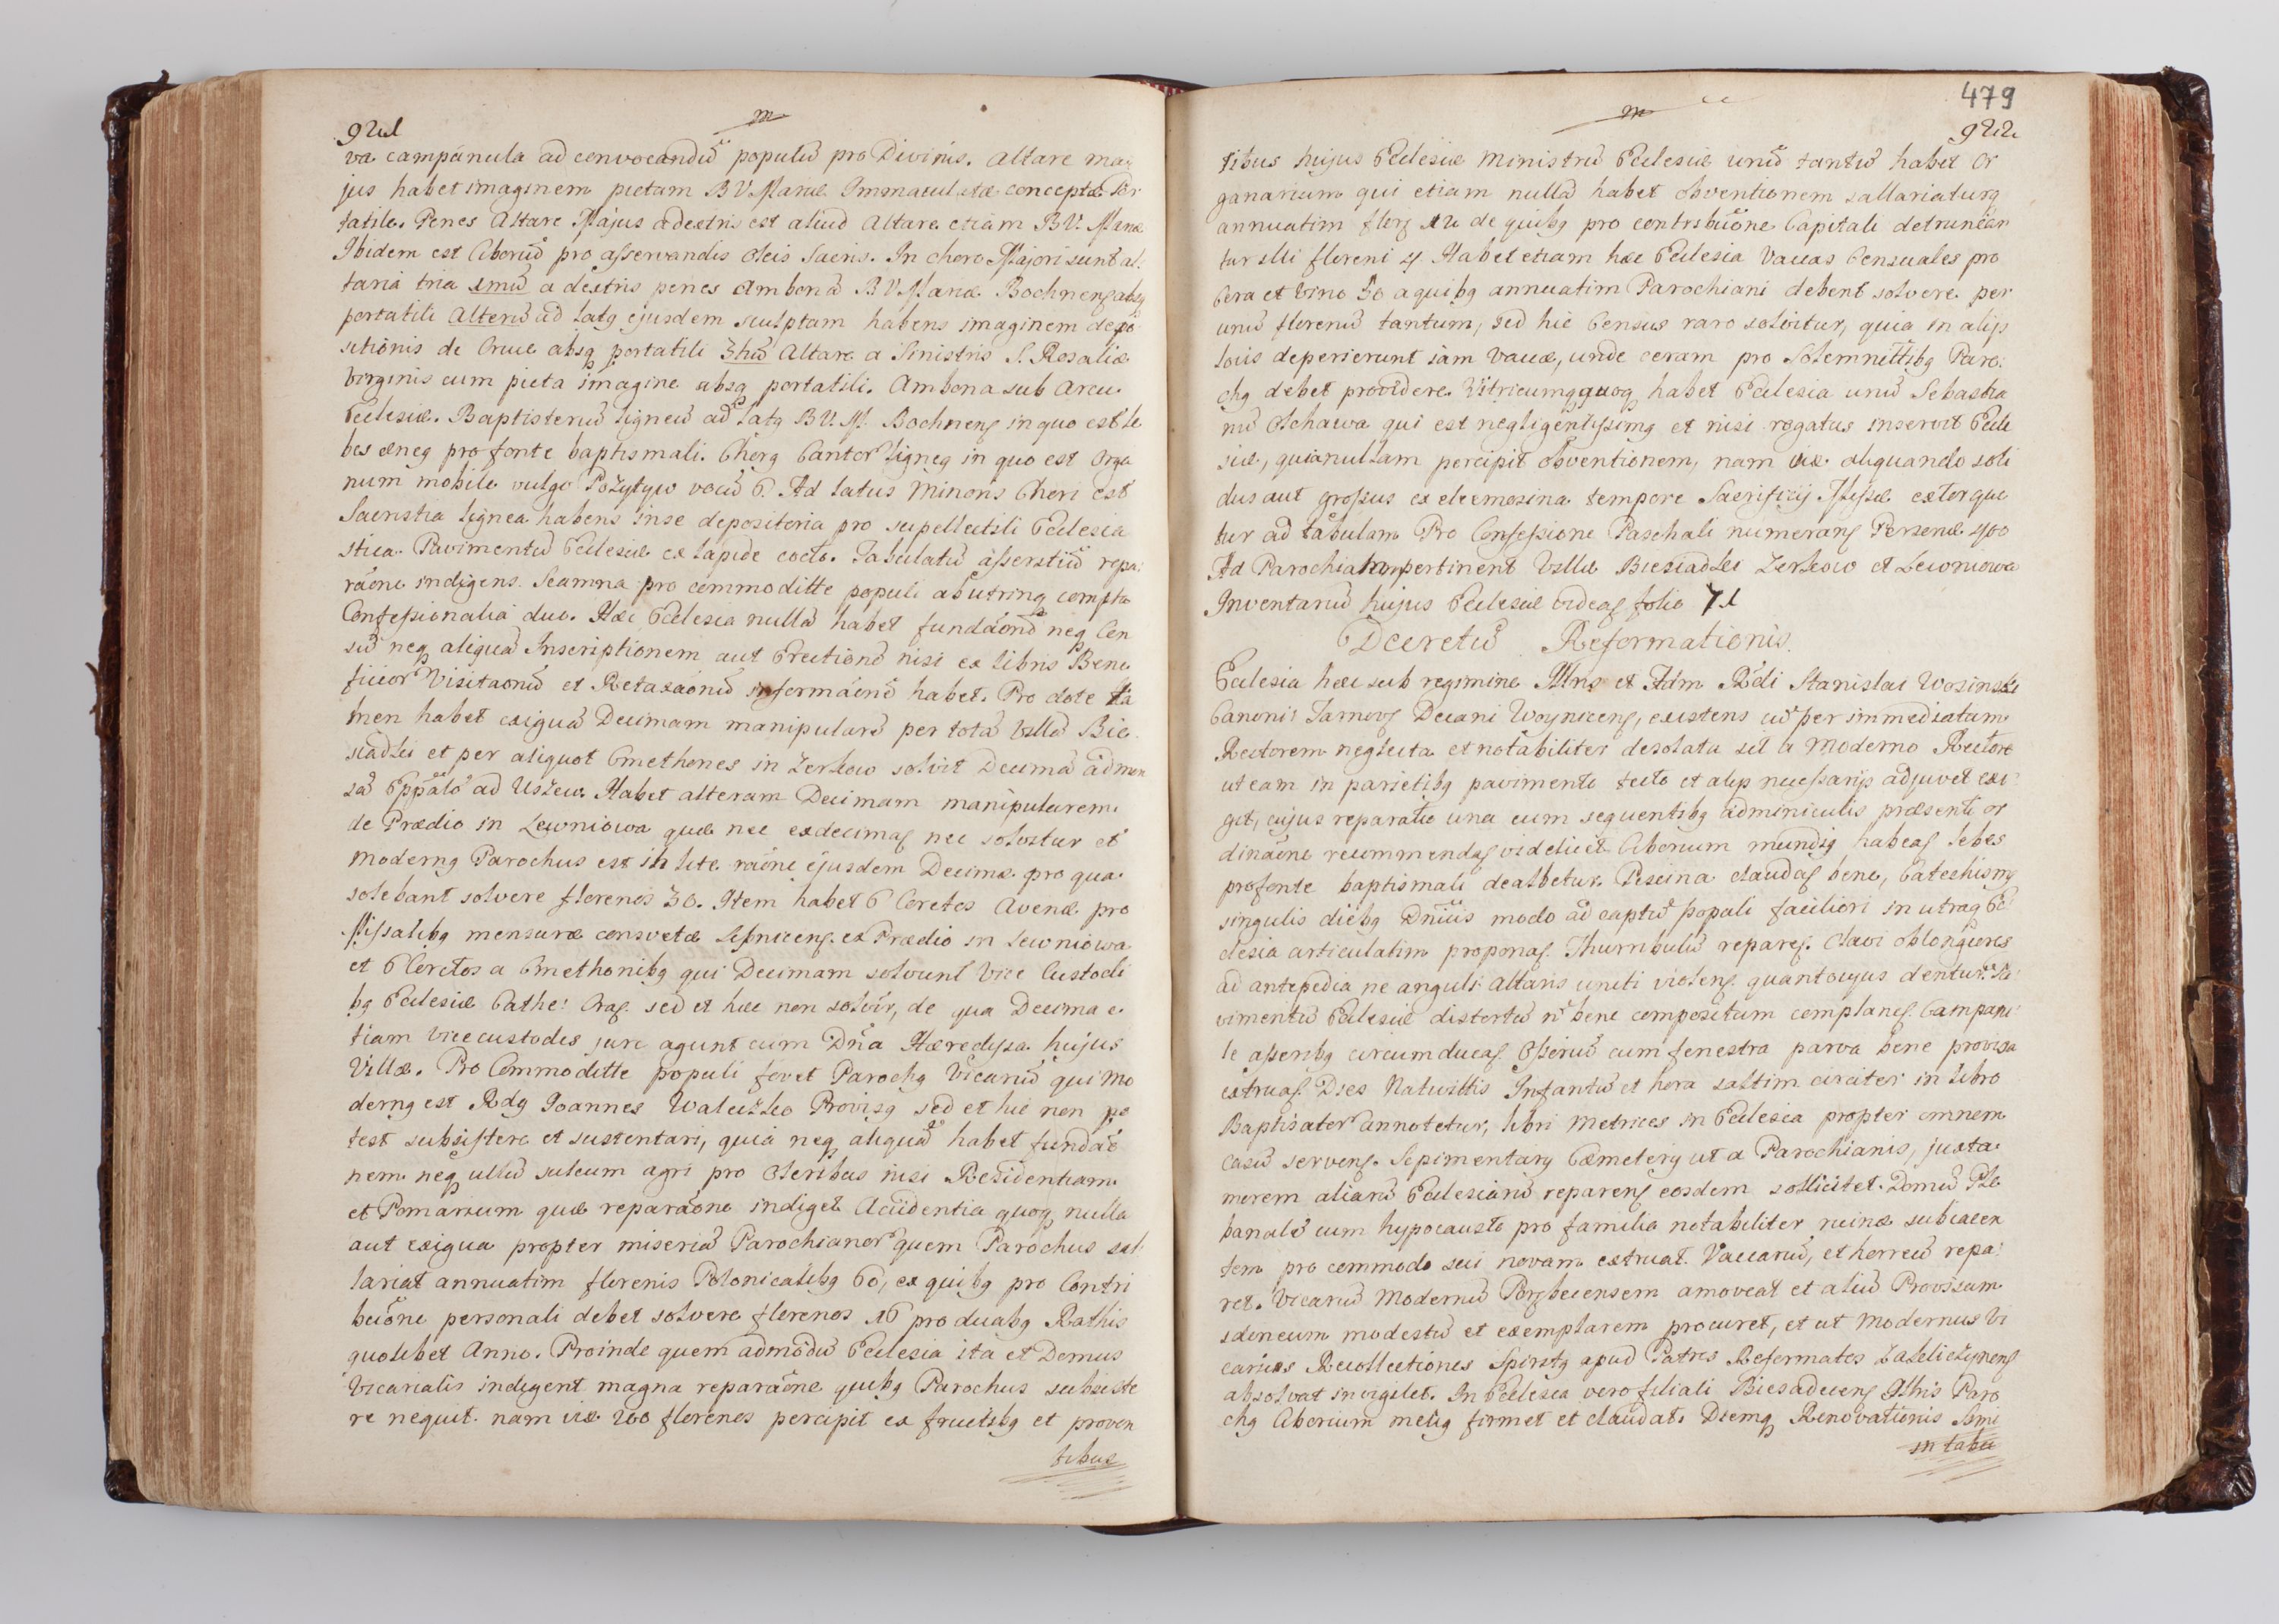 921
m
va campanula ad convocandũ populũ pro Divinis. Altare ma
jus habet imaginem pictam B V Mariæ Immaculatæ conceptæ Por
tatile. Penes Altare Majus a dextris est aliud Altare etiam B V. Mariæ
Ibidem est Ciboriũ pro asservandis Oleis Sacris. In choro Majori sunt al-
taria tria 1mũ a dextris penes Ambonã B V Mariæ Bochnens absq
portatili Alterũ ad latq ejusdem sculptam habens imaginem depo
sitionis de Cruce absq portatili 3tiũ Altare a Sinistris S. Rosaliæ
Virginis cum picta imagine absq portatili. Ambona sub Arcu
Ecclesiæ. Baptisteriũ ligneũ ad latq B V. M. Bochnens in quo est le
bes æneq pro fonte baptismali. Chorq Cantor ligneq in quo est Orga
num mobile vulgo Pozytyw vocũ 6. Ad latus Minoris Chori est
Sacristia lignea habens in se depositoria pro supellectili Ecclesia
stica. Pavimentũ Ecclesiæ ex lapide cocto. Tabulatũ asserstiũ repa:
raõne indigens. Scamna pro commoditte populi ab utrinq compta
Confessionalia duo. Hæc Ecclesia nullã habet fundaõnẽ neq Cen
sũ neq aliquã Inscriptionem aut Erectionẽ nisi ex libris Bene
ficior Visitaonũ et Retaxaonũ informaõnẽ habet. Pro dote ta
men habet exiguã Decimam manipularẽ per totã Vallã Bie
siadki et per aliquot Cmethones in Zerkow solvit Decimã ad men
sã Eppalẽ ad Uszew. Habet alteram Decimam manipularem
de Prædio in Lewniowa quæ nec exdecimas nec solvitur et
modernq Parochus est in lite raõne ejusdem Decimæ pro qua
solebant solvere florenos 30. Item habet 6 Coretos Avenæ pro
Missalibq mensuræ consvetæ Lipnicens ex Prædio in Lewniowa
et 6 Coretos a Cmethonibq qui Decimam solvunt Vice Custodi
bq Ecclesiæ Cathe: Crac. sed et hæc non solvir, de qua Decima e
tiam vice custodes jure agunt cum Dña Hæredissa hujus
Villæ. Pro Commoditte populi fovet Parochq Vicariũ qui Mo
dernq est Rdq Joannes Waluszko Provisq sed et hic non po
test subsistere et sustentari, quia neq aliquã habet fundaõ
nem neq ullũ sulcum agri pro Oleribus nisi Residentiam
et Pomarium quæ reparaõne indiget Accidentia quoq nulla
aut exigua propter miseriã Parochianor quem Parochus sal-
lariat annuatim florenis Polonicalibq 60, ex quibq pro Contri
buõne personali debet solvere florenos 16 pro duabq Rathis
quolibet Anno. Proinde quem admodũ Ecclesia ita et Domus
Vicarialis indigent magna reparaõne quibq Parochus subsiste
re nequit. nam vix 200 florenos percipit ex fructibq et proven
tibus
479
m
922
tibus hujus Ecclesiæ Ministrũ Ecclesiæ unũ tantũ habet Or
ganarium qui etiam nullã habet obventionem sallariaturq
annuatim flors 12 de quibq pro contribuõne Capitali detruncan
tur illi floreni 4 Habet etiam hæc Ecclesia Vaccas Censuales pro
Cera et Vino 30 a quibq annuatim Parochiani debent solvere per
unũ florenũ tantum, sed hic Census raro solvitur, quia in alijs
locis deperierunt jam vaccæ, unde ceram pro Solemnittibq Paro:
chq debet providere. Vitricumq quoq habet Ecclesia unũ Sebastia
nũ Olchawa qui est negligentissimq et nisi rogatus inservit Eccle
siæ, quia nullam percipit obventionem, nam vix aliquando soli
dus aut grossus ex eleemosina tempore Sacrificij Missæ extorque
tur ad tabulam Pro Confessione Paschali numerans Personæ 400
Ad Parochiam pertinent Vallæ Biesiadki Zerkow et Lewniowa
Inventariũ hujus Ecclesiæ videas folio 71
Decretũ Reformationis.
Ecclesia hæc sub regimine Illris et Adm Rdi Stanislai Wosinski
Canonici Tarnovs Decani Woynicens, existens ut per immediatum
Rectorem neglecta et notabiliter desolata sit a Moderno Rectore
ut eam in parietibq pavimento tecto et alijs necessarijs adjuvet exi
git, cujus reparatio una cum sequentibq adminiculis præsenti or
dinaõne recommendas videlicet Ciborium mundiq habeas lebes
pro fonte baptismali dealbetur. Piscina claudas bene, Catechismq
singulis diebq Dnicis modo ad captũ populi faciliori in utraq Ec
clesia articulatim proponas. Thuribulũ repares. Clavi oblongiores
ad antepedia ne anguli altaris uncti violens quantocyus dentur. Pa
vimentũ Ecclesiæ distortũ n bene compositum complanes. Campani
le asseribq circumducas. Osseriũ cum fenestra parva bene provisa
extruas. Dies Nativittis Infantũ et hora saltim circiter in libro
Baptisator annotetur, libri Metrices in Ecclesia propter omnem
casũ servens. Sepimentarq Cæmeterij ut a Parochianis, juxta
morem aliarũ Ecclesiarũ reparens eosdem sollicitet. Domũ Ple
banalẽ cum hypocausto pro familia notabiliter ruinæ subjacen
tem pro commodo sui novam extruat. Vaccariũ, et horreũ repa:
ret. Vicariũ Modernũ Porąbecensem amoveat et aliũ Provisum
idoneum modestũ et exemplarem procuret, et ut Modernus Vi
carius Recollectiones Spiritq apud Patres Reformatos Zakliczynens
absolvat invigilet. In Ecclesia vero filiali Biesadecens Illris Paro
chq Ciborium meliq firmet et claudat. Diemq Renovationis Ssmi
in tabu